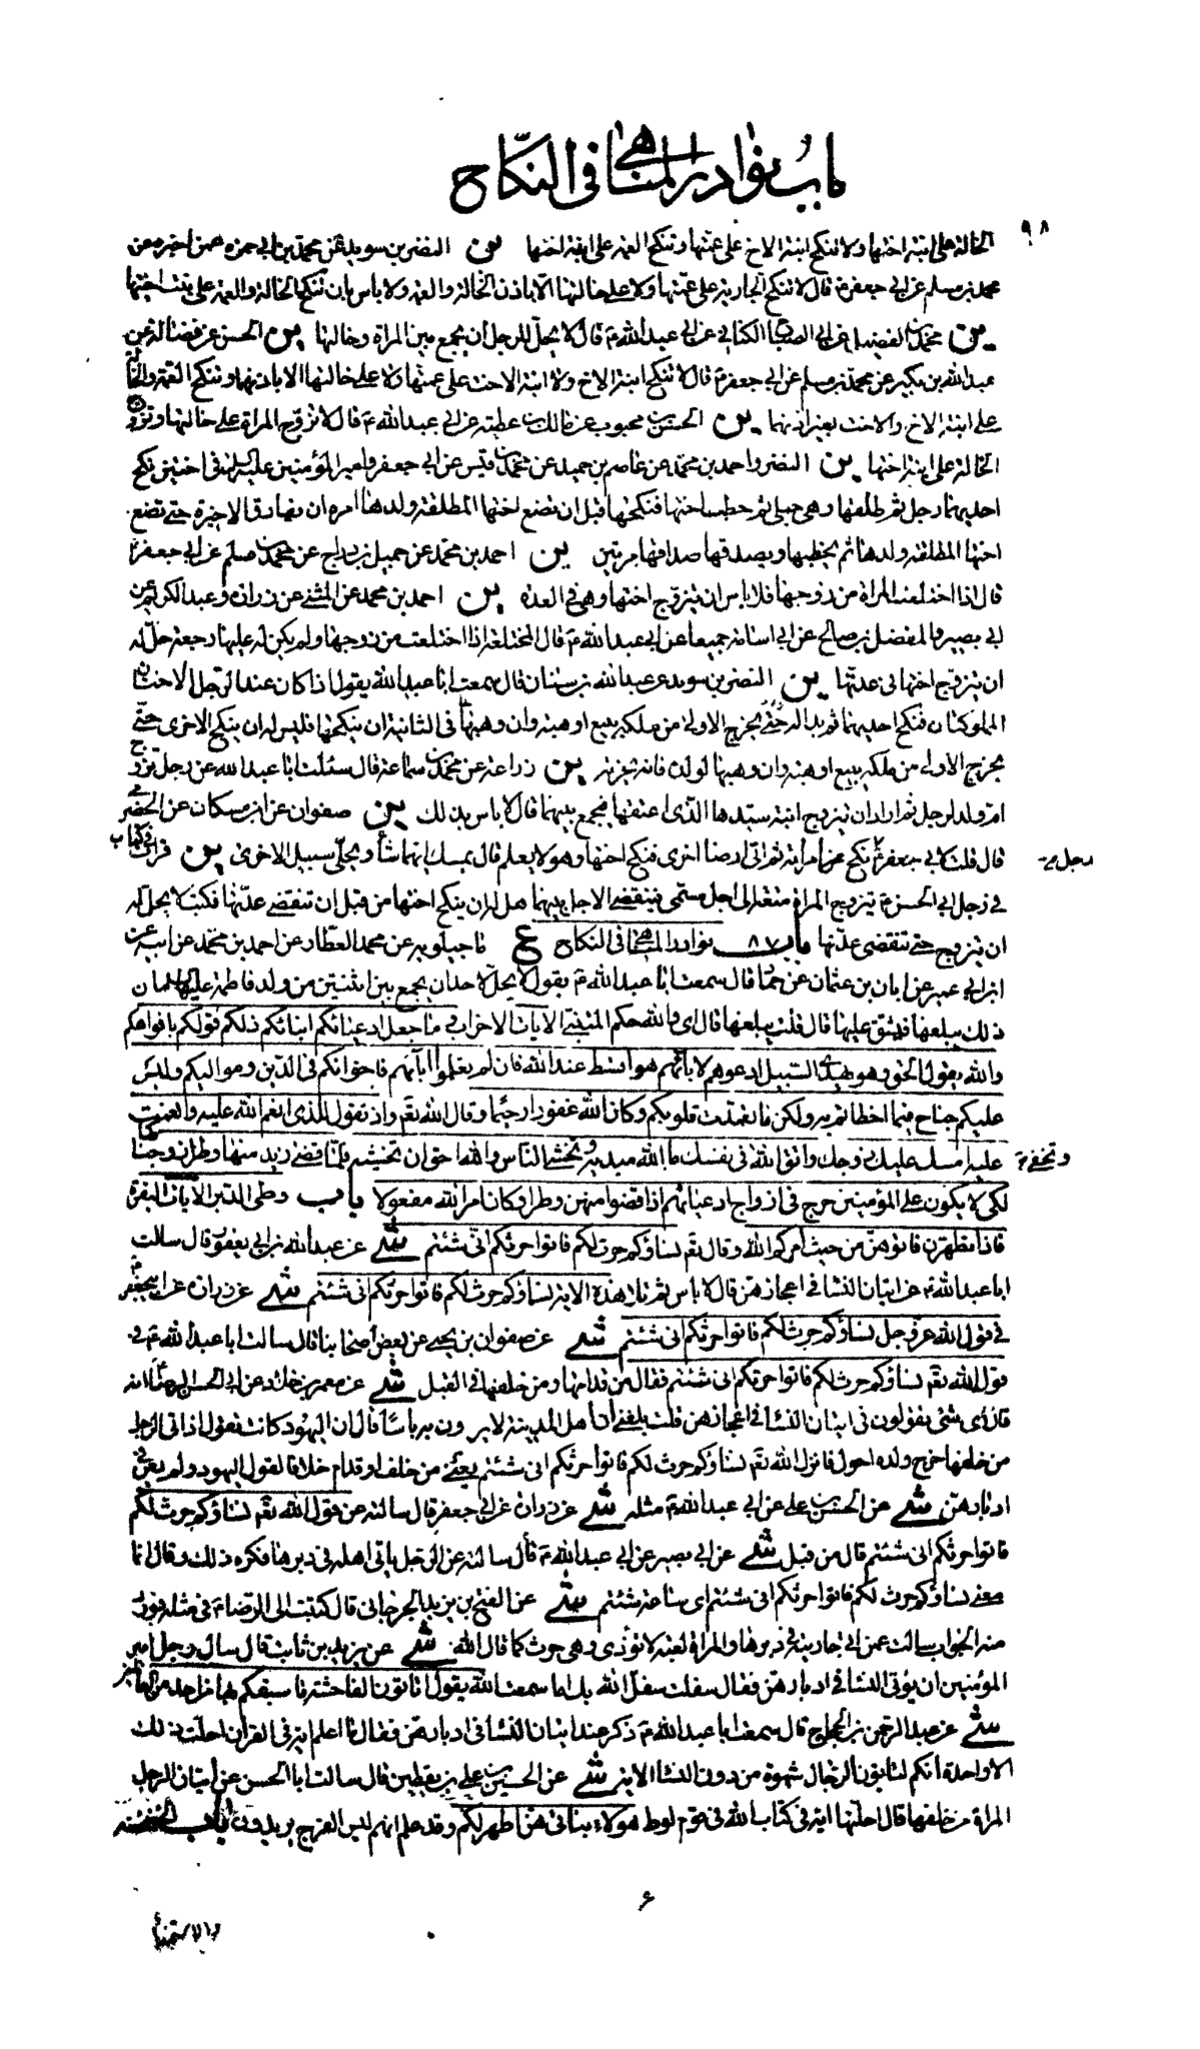 باب نوادر المناهي في النكاح
٩٨
الخالة على ابنة اختها ولا تنكح ابنة الاخ على عمتها وتنكح العمة على ابنة اخيها ين النضر بن سويد عن محمد بن ابي حمزة عمن اخبره عن
محمد بن مسلم عن ابي جعفر ع قال لا تنكح الجارية على عمتها ولا على خالتها الا باذن الخالة والعمة ولا باس بان تنكح الخالة والعمة على بنت اختها
ين محمد بن الفضيل عن ابي الصباح الكناني عن ابي عبد الله ع قال لا يحل للرجل ان يجمع بين المراة وخالتها ين الحسن عن فضالة عن
عبد الله بن بكير عن محمد بن مسلم عن ابي جعفر ع قال لا تنكح ابنة الاخ ولا ابنة الاخت على عمتها ولا على خالتها الا باذنهما وتنكح العمة والخالة
على ابنة الاخ والاخت بغير اذنهما ين الحسن بن محبوب عن مالك بن عطية عن ابي عبد الله ع قال لا تزوج المراة على خالتها وتزوج
الخالة على ابنة اختها ين النضر واحمد بن محمد عن عاصم بن حميد عن محمد بن قيس عن ابي جعفر وامير المؤمنين عليه السلام في اختين نكح
احديهما رجل ثم طلقها وهي حبلى ثم خطب اختها فنكحها قبل ان تضع اختها المطلقة ولدها امره ان يفارق الاخيرة حتى تضع
اختها المطلقة ولدها ثم يخطبها ويصدقها صداقها مرتين ين احمد بن محمد عن جميل بن دراج عن محمد بن مسلم عن ابي جعفر ع
قال اذا اختلعت المراة من زوجها فلا باس ان يتزوج اختها وهي في العدة ين احمد بن محمد عن المثنى عن زرارة وعبد الكريم عن
ابي بصير والمفضل بن صالح عن ابي اسامة جميعا عن ابي عبد الله ع قال المختلعة اذا اختلعت من زوجها ولم يكن له عليها رجعة حل له
ان يتزوج اختها في عدتها ين النضر بن سويد عن عبد الله بن سنان قال سمعت ابا عبد الله يقول اذا كان عند الرجل الاختان
المملوكتان فنكح احديهما ثم بدا له في الثانية ان ينكحها فليس له ان ينكح الاخرى حتى
يخرج الاولى من ملكه ببيع او هبة وان وهبها لولده فانه يجزيه ين زرعة عن محمد بن سماعة قال سئلت ابا عبد الله عن رجل تزوج
ام ولد لرجل ثم اراد ان يتزوج ابنة سيدها الذي اعتقها فيجمع بينهما قال لا باس بذلك ين صفوان عن ابن مسكان عن الحضرمي
قال قلت لابي جعفر ع نكح امراة ثم اتى ارضا اخرى فنكح اختها وهو لا يعلم قال يمسك ايتهما شاء ويخلى سبيل الاخرى ين قرات في كتاب
رجل
في رجل ابي الحسن ع يتزوج المراة متعة الى اجل مسمى فينقضي الاجل بينهما هل له ان ينكح اختها من قبل ان تنقضي عدتها فكتب لا يحل له
ان يتزوج حتى تنقضي عدتها باب ٨٧ نوادر المناهي في النكاح ع ماجيلويه عن محمد العطار عن احمد بن محمد عن ابيه عن
ابن ابي عمير عن ابان بن عثمان عن حماد قال سمعت ابا عبد الله ع يقول لا يحل لاحد ان يجمع بين اثنتين من ولد فاطمة عليها السلام ان
ذلك يبلغها فيشق عليها قال قلت يبلغها قال اي والله حكم المتبنى الآيات الاحزاب وما جعل ادعيائكم ابنائكم ذلكم قولكم بافواهكم
والله يقول الحق وهو يهدي السبيل ادعوهم لابائهم هو اقسط عند الله فان لم تعلموا ابائهم فاخوانكم في الدين ومواليكم وليس
عليكم جناح فيما اخطاتم به ولكن ما تعمدت قلوبكم وكان الله غفورا رحيما وقال الله تع واذ تقول للذي انعم الله عليه وانعمت
عليه امسك عليك زوجك واتق الله في نفسك ما الله مبديه وتخشى الناس والله احق ان تخشيه فلما قضى زيد منها وطرا زوجناكها
وتخفي
لكي لا يكون على المؤمنين حرج في ازواج ادعيائهم اذا قضوا منهن وطرا وكان امر الله مفعولا باب وطى الدبر الآيات البقرة
فاذا تطهرن فاتوهن من حيث امركم الله وقال تع نساؤكم حرث لكم فاتوا حرثكم انى شئتم شي عن عبد الله بن ابي يعفور قال سالت
ابا عبد الله ع عن اتيان النساء في اعجازهن قال لا باس ثم تلا هذه الاية نساؤكم حرث لكم فاتوا حرثكم انى شئتم شي عن زرارة عن ابي جعفر ع
في قول الله عز وجل نساؤكم حرث لكم فاتوا حرثكم انى شئتم شي عن صفوان بن يحيى عن بعض اصحابنا قال سالت ابا عبد الله ع في
قول الله تع نساؤكم حرث لكم فاتوا حرثكم انى شئتم فقال من قدامها ومن خلفها في القبل شي عن معمر بن خلاد عن ابي الحسن الرضا ع انه
قال اي شئ يقولون في اتيان النساء في اعجازهن قلت بلغني ان اهل المدينة لا يرون به باسا قال ان اليهود كانت تقول اذا اتى الرجل
من خلفها خرج ولده احول فانزل الله تع نساؤكم حرث لكم فاتوا حرثكم انى شئتم يعني من خلف او قدام خلافا لقول اليهود ولم يعن في
ادبارهن شي عن الحسن بن علي عن ابي عبد الله ع مثله شي عن زرارة عن ابي جعفر قال سالته عن قول الله تع نساؤكم حرث لكم
فاتوا حرثكم انى شئتم قال من قبل شي عن ابي بصير عن ابي عبد الله ع قال سالته عن الرجل ياتي اهله في دبرها فكره ذلك وقال انما
معنى نساؤكم حرث لكم فاتوا حرثكم انى شئتم اي ساعة شئتم شي عن الفتح بن يزيد الجرجاني قال كتبت الى الرضا ع في مثله فورد
منه الجواب سالت عمن اتى جاريته في دبرها والمراة لعبة لا تؤذى وهي حرث كما قال الله شي عن يزيد بن ثابت قال سال رجل امير
المؤمنين ان يؤتى النساء في ادبارهن فقال سفلت سفل الله بك اما سمعت الله يقول اتاتون الفاحشة ما سبقكم بها من احد من العالمين
شي عن عبد الرحمن بن الحجاج قال سمعت ابا عبد الله ع ذكر عنده اتيان النساء في ادبارهن فقال ما اعلم اية في القران احلت ذلك
الا واحدة انكم لتاتون الرجال شهوة من دون النساء الاية شي عن الحسين بن علي بن يقطين قال سالت ابا الحسن عن اتيان الرجل
المراة من خلفها قال احلتها اية في كتاب الله في قوم لوط هولاء بناتي هن اطهر لكم وقد علم انهم ليس الفرج يريدون باب الخضخضة
٤
والاستمناء